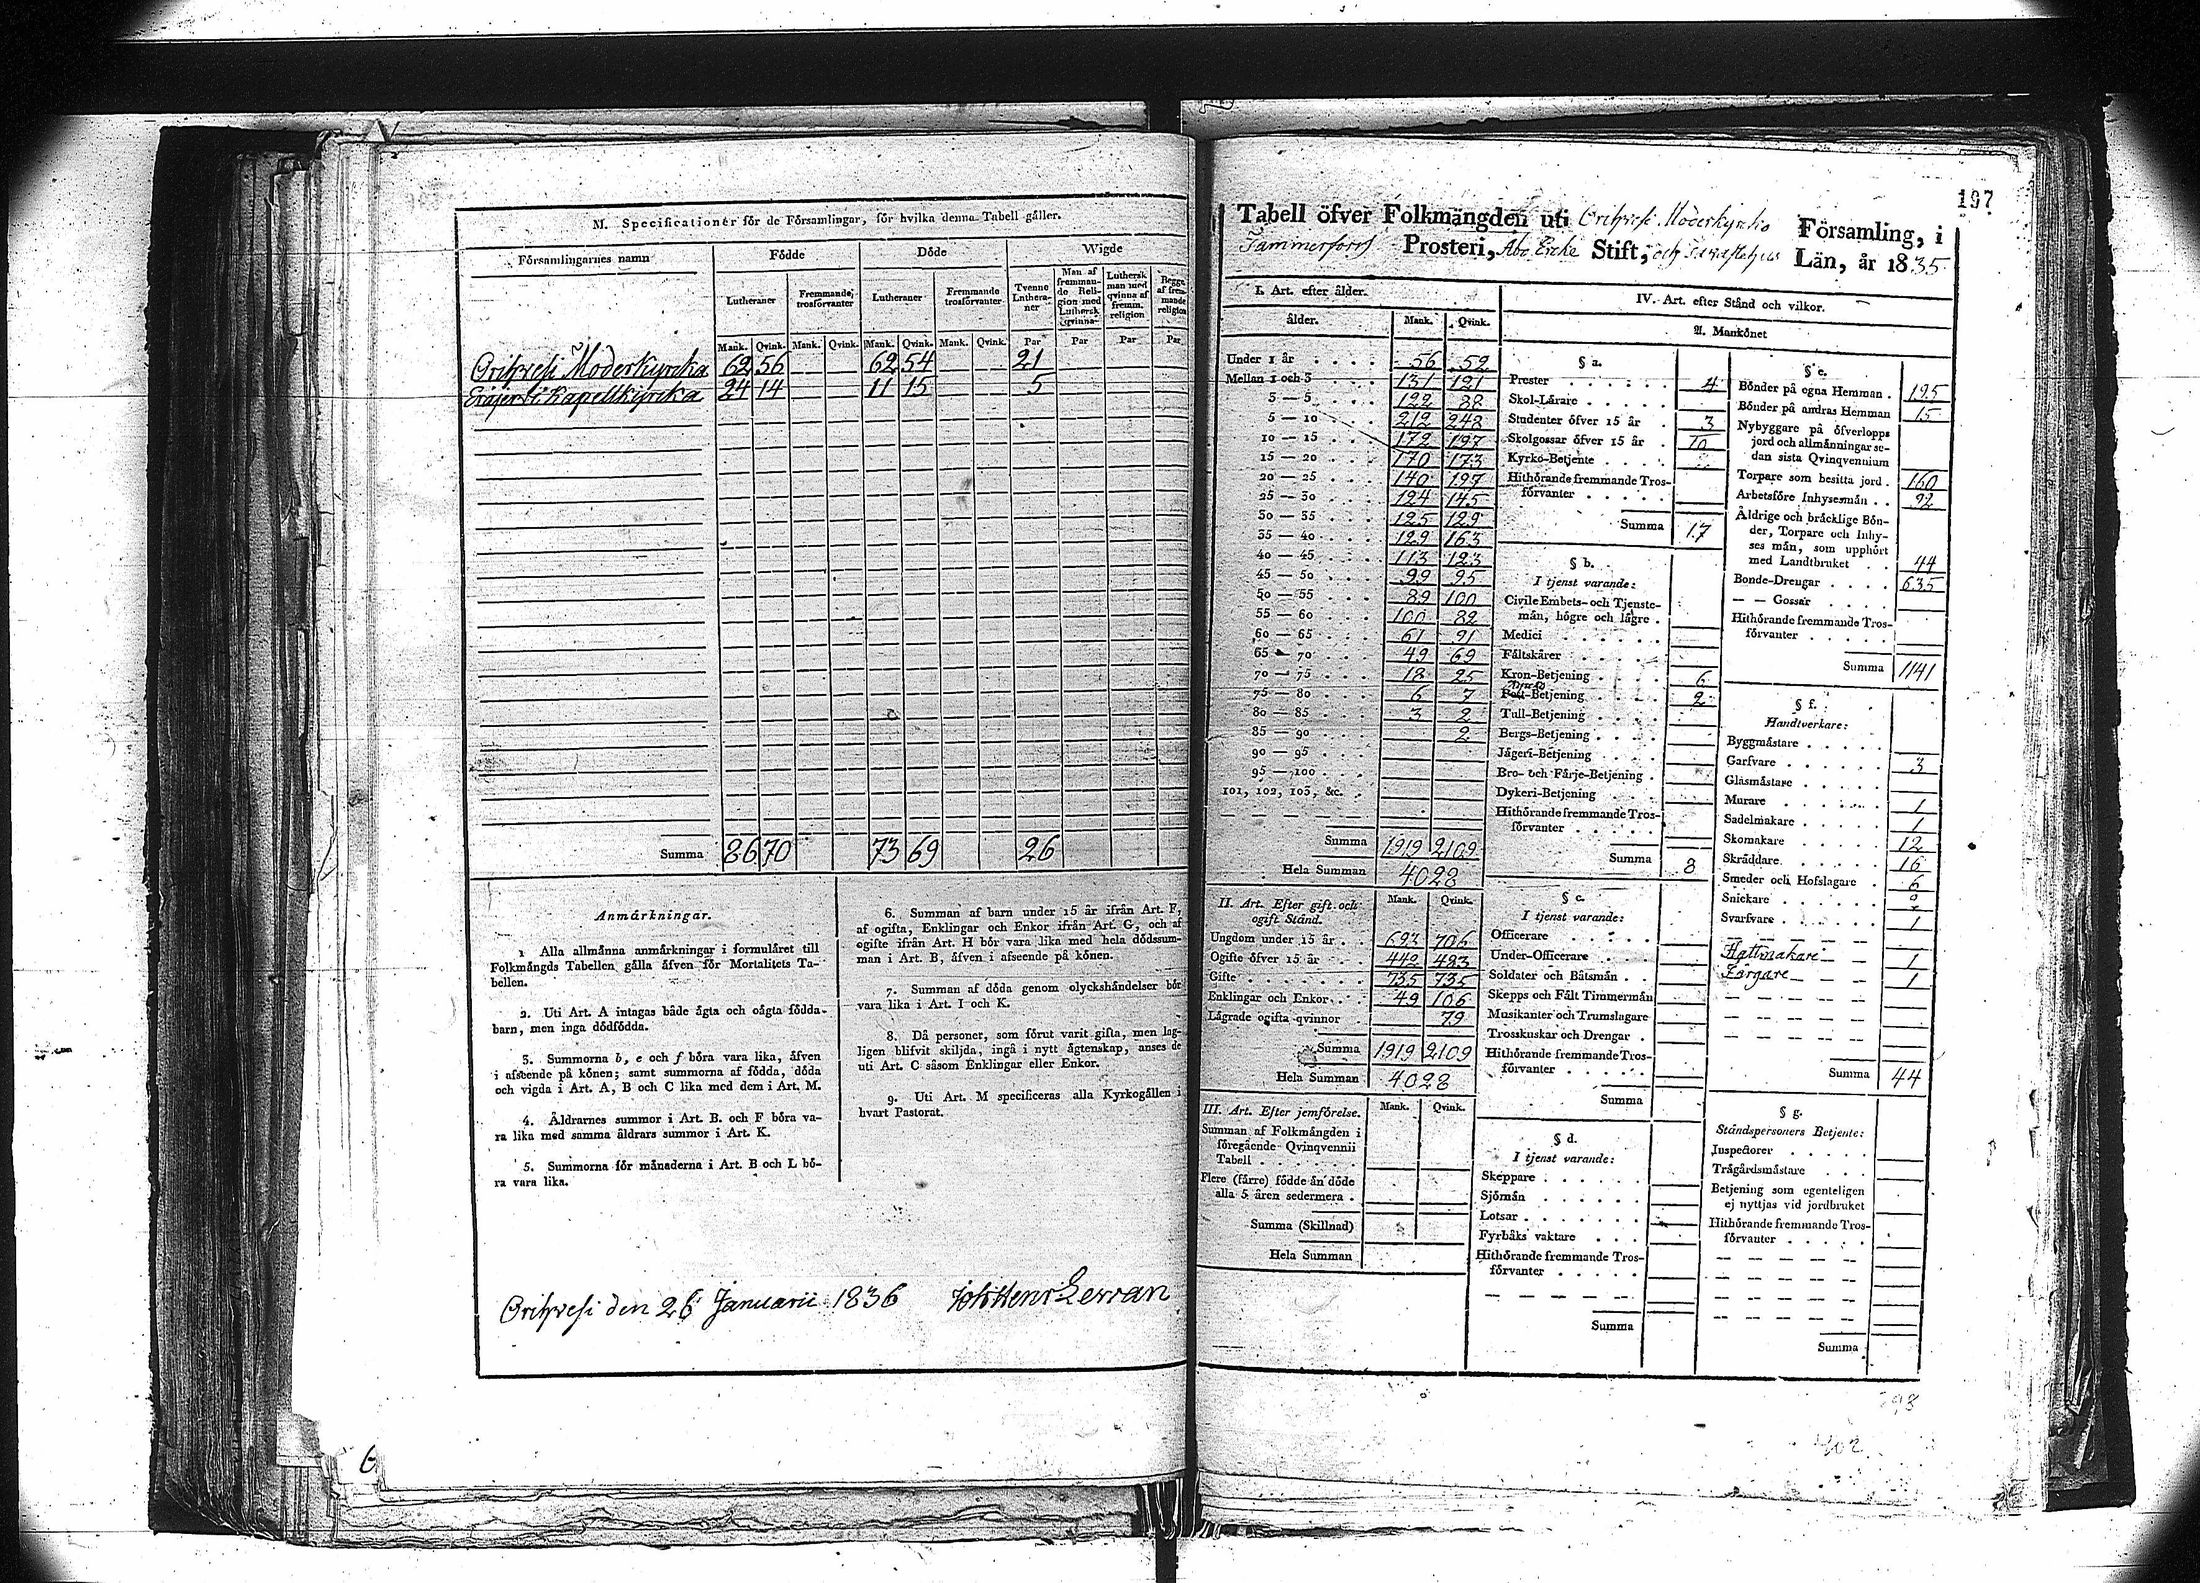 M. Specificationer för de Församlingar, för hvilka denna Tabell gäller.
Församlingarnes namn
Födde
Döde
Wigde
Lutheraner
Fremmande trosförvanter
Lutheraner
Fremmande trosförvanter
Tvenne Lutheraner
Man af fremmande Religion med Luthersk qvinna
Luthersk man med qvinna af fremm. religion
Begge af fremmande religion
Mank. Qvink. Mank. Qvink. Mank. Qvink. Mank. Qvink. Par Par Par Par
Orihvesi Moderkyrcka 62 56 62 54 21
Eräjervi Kapellkyrcka 24 14 11 15 5
Summa 86 70 73 69 26
Anmärkningar.
1 Alla allmänna anmärkningar i formuläret till
Folkmängds Tabellen gälla äfven för Mortalitets Ta-
bellen.
2. Uti Art. A intagas både ägta och oägta födda
barn, men inga dödfödda.
3. Summorna b, e och f böra vara lika, äfven
i afseende på könen; samt summorna af födda, döda
och vigda i Art. A, B och C lika med dem i Art. M.
4. Åldrarnes summor i Art. B. och F böra va-
ra lika med samma åldrars summor i Art. K.
5. Summorna för månaderna i Art. B och L bö-
ra vara lika.
6. Summan af barn under 15 år ifrån Art. F,
af ogifta, Enklingar och Enkor ifrån Art. G, och af
ogifte ifrån Art. H bör vara lika med hela dödssum-
man i Art. B, äfven i afseende på könen.
7. Summan af döda genom olyckshändelser bör
vara lika i Art. I och K.
8. Då personer, som förut varit gifta, men lag-
ligen blifvit skiljda, ingå i nytt ägtenskap, anses de
uti Art. C såsom Enklingar eller Enkor.
9. Uti Art. M specificeras alla Kyrkogällen i
hvart Pastorat.
Orihvesi den 26 Januarii 1836
197
Tabell öfver Folkmängden uti Orihvesi Moderkyrko Församling, i
Tammerfors Prosteri, Åbo Ercke Stift, och Tavastehus Län, år 1835.
I. Art. efter ålder.
ålder. Mank. Qvink.
Under 1 år 56 52
Mellan 1 och 3 131 121
3 — 5 192 88
5 — 10 212 248
10 — 15 172 197
15 — 20 170 173
20 — 25 140 197
25 — 30 124 145
30 — 35 125 129
35 — 40 129 163
40 — 45 113 123
45 — 50 99 95
50 — 55 89 100
55 — 60 100 82
60 — 65 61 91
65 — 70 49 69
70 — 75 18 25
75 — 80 6 7
80 — 85 3 2
85 — 90 2
90 — 95
95 — 100
101, 102, 103, &c.
Summa 1919 2109
Hela Summan 4028
II. Art. Efter gift och ogift Stånd. Mank. Qvink.
Ungdom under 15 år 693 706
Ogifte öfver 15 år 442 483
Gifte 735 735
Enklingar och Enkor 49 106
Lägrade ogifta qvinnor 79
Summa 1919 2109
Hela Summan 4028
III. Art. Efter jemförelse. Mank. Qvink.
Summan af Folkmängden i
föregående Qvinqvennii
Tabell
Flere (färre) födde än döde
alla 5 åren sedermera
Summa (Skillnad)
Hela Summan
IV. Art. efter Stånd och vilkor.
A. Mankönet
§ a.
Prester 4
Skol-Lärare
Studenter öfver 15 år 3
Skolgossar öfver 15 år 10
Kyrko-Betjente
Hithörande fremmande Tros-
förvanter
Summa 17
§ b.
I tjenst varande:
Civile Embets- och Tjenste-
män, högre och lägre
Medici
Fältskärer
Kron-Betjening 6
Post-Betjening 2
Tull-Betjening
Bergs-Betjening
Jägeri-Betjening
Bro- och Färje-Betjening
Dykeri-Betjening
Hithörande fremmande Tros-
förvanter
Summa 8
§ c.
I tjenst varande:
Officerare
Under-Officerare
Soldater och Båtsmän
Skepps och Fält Timmermän
Musikanter och Trumslagare
Trosskuskar och Drengar
Hithörande fremmande Tros-
förvanter
Summa
§ d.
I tjenst varande:
Skeppare
Sjömän
Lotsar
Fyrbåks vaktare
Hithörande fremmande Tros-
förvanter
Summa
§ e.
Bönder på egna Hemman 195
Bönder på andras Hemman 15
Nybyggare på öfverlopps
jord och allmänningar se-
dan sista Qvinqvennium
Torpare som besitta jord 160
Arbetsföre Inhysesmän 92
Åldrige och bräcklige Bön-
der, Torpare och Inhy-
ses män, som upphört
med Landtbruket 44
Bonde-Drengar 635
— — Gossar
Hithörande fremmande Tros-
förvanter
Summa 1141
§ f.
Handtverkare:
Byggmästare
Garfvare 3
Glasmästare
Murare 1
Sadelmakare 1
Skomakare 12
Skräddare 16
Smeder och Hofslagare 6
Snickare
Svarfvare 1
Hattmakare 1
Färgare 1
Summa 44
§ g.
Ståndspersoners Betjente:
Inspectorer
Trägårdsmästare
Betjening som egenteligen
ej nyttjas vid jordbruket
Hithörande fremmande Tros-
förvanter
Summa
402